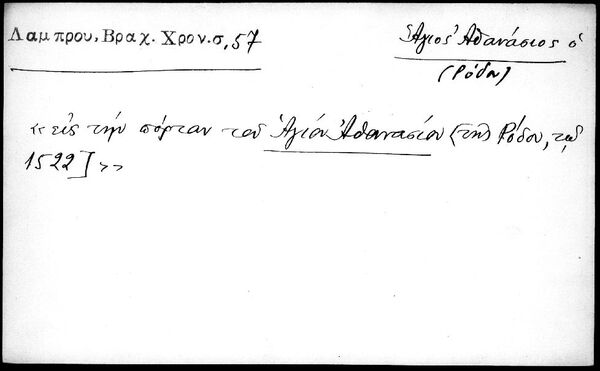 Λαμπρου, Βραχ. Χρον.σ, 57
Ἅγιος Ἀθανάσιος ὁ
(Ρόδου)
«εἰς τὴν πόρταν τοῦ Ἁγίου Ἀθανασίου [τῆς Ρόδου, τῷ
1522]»